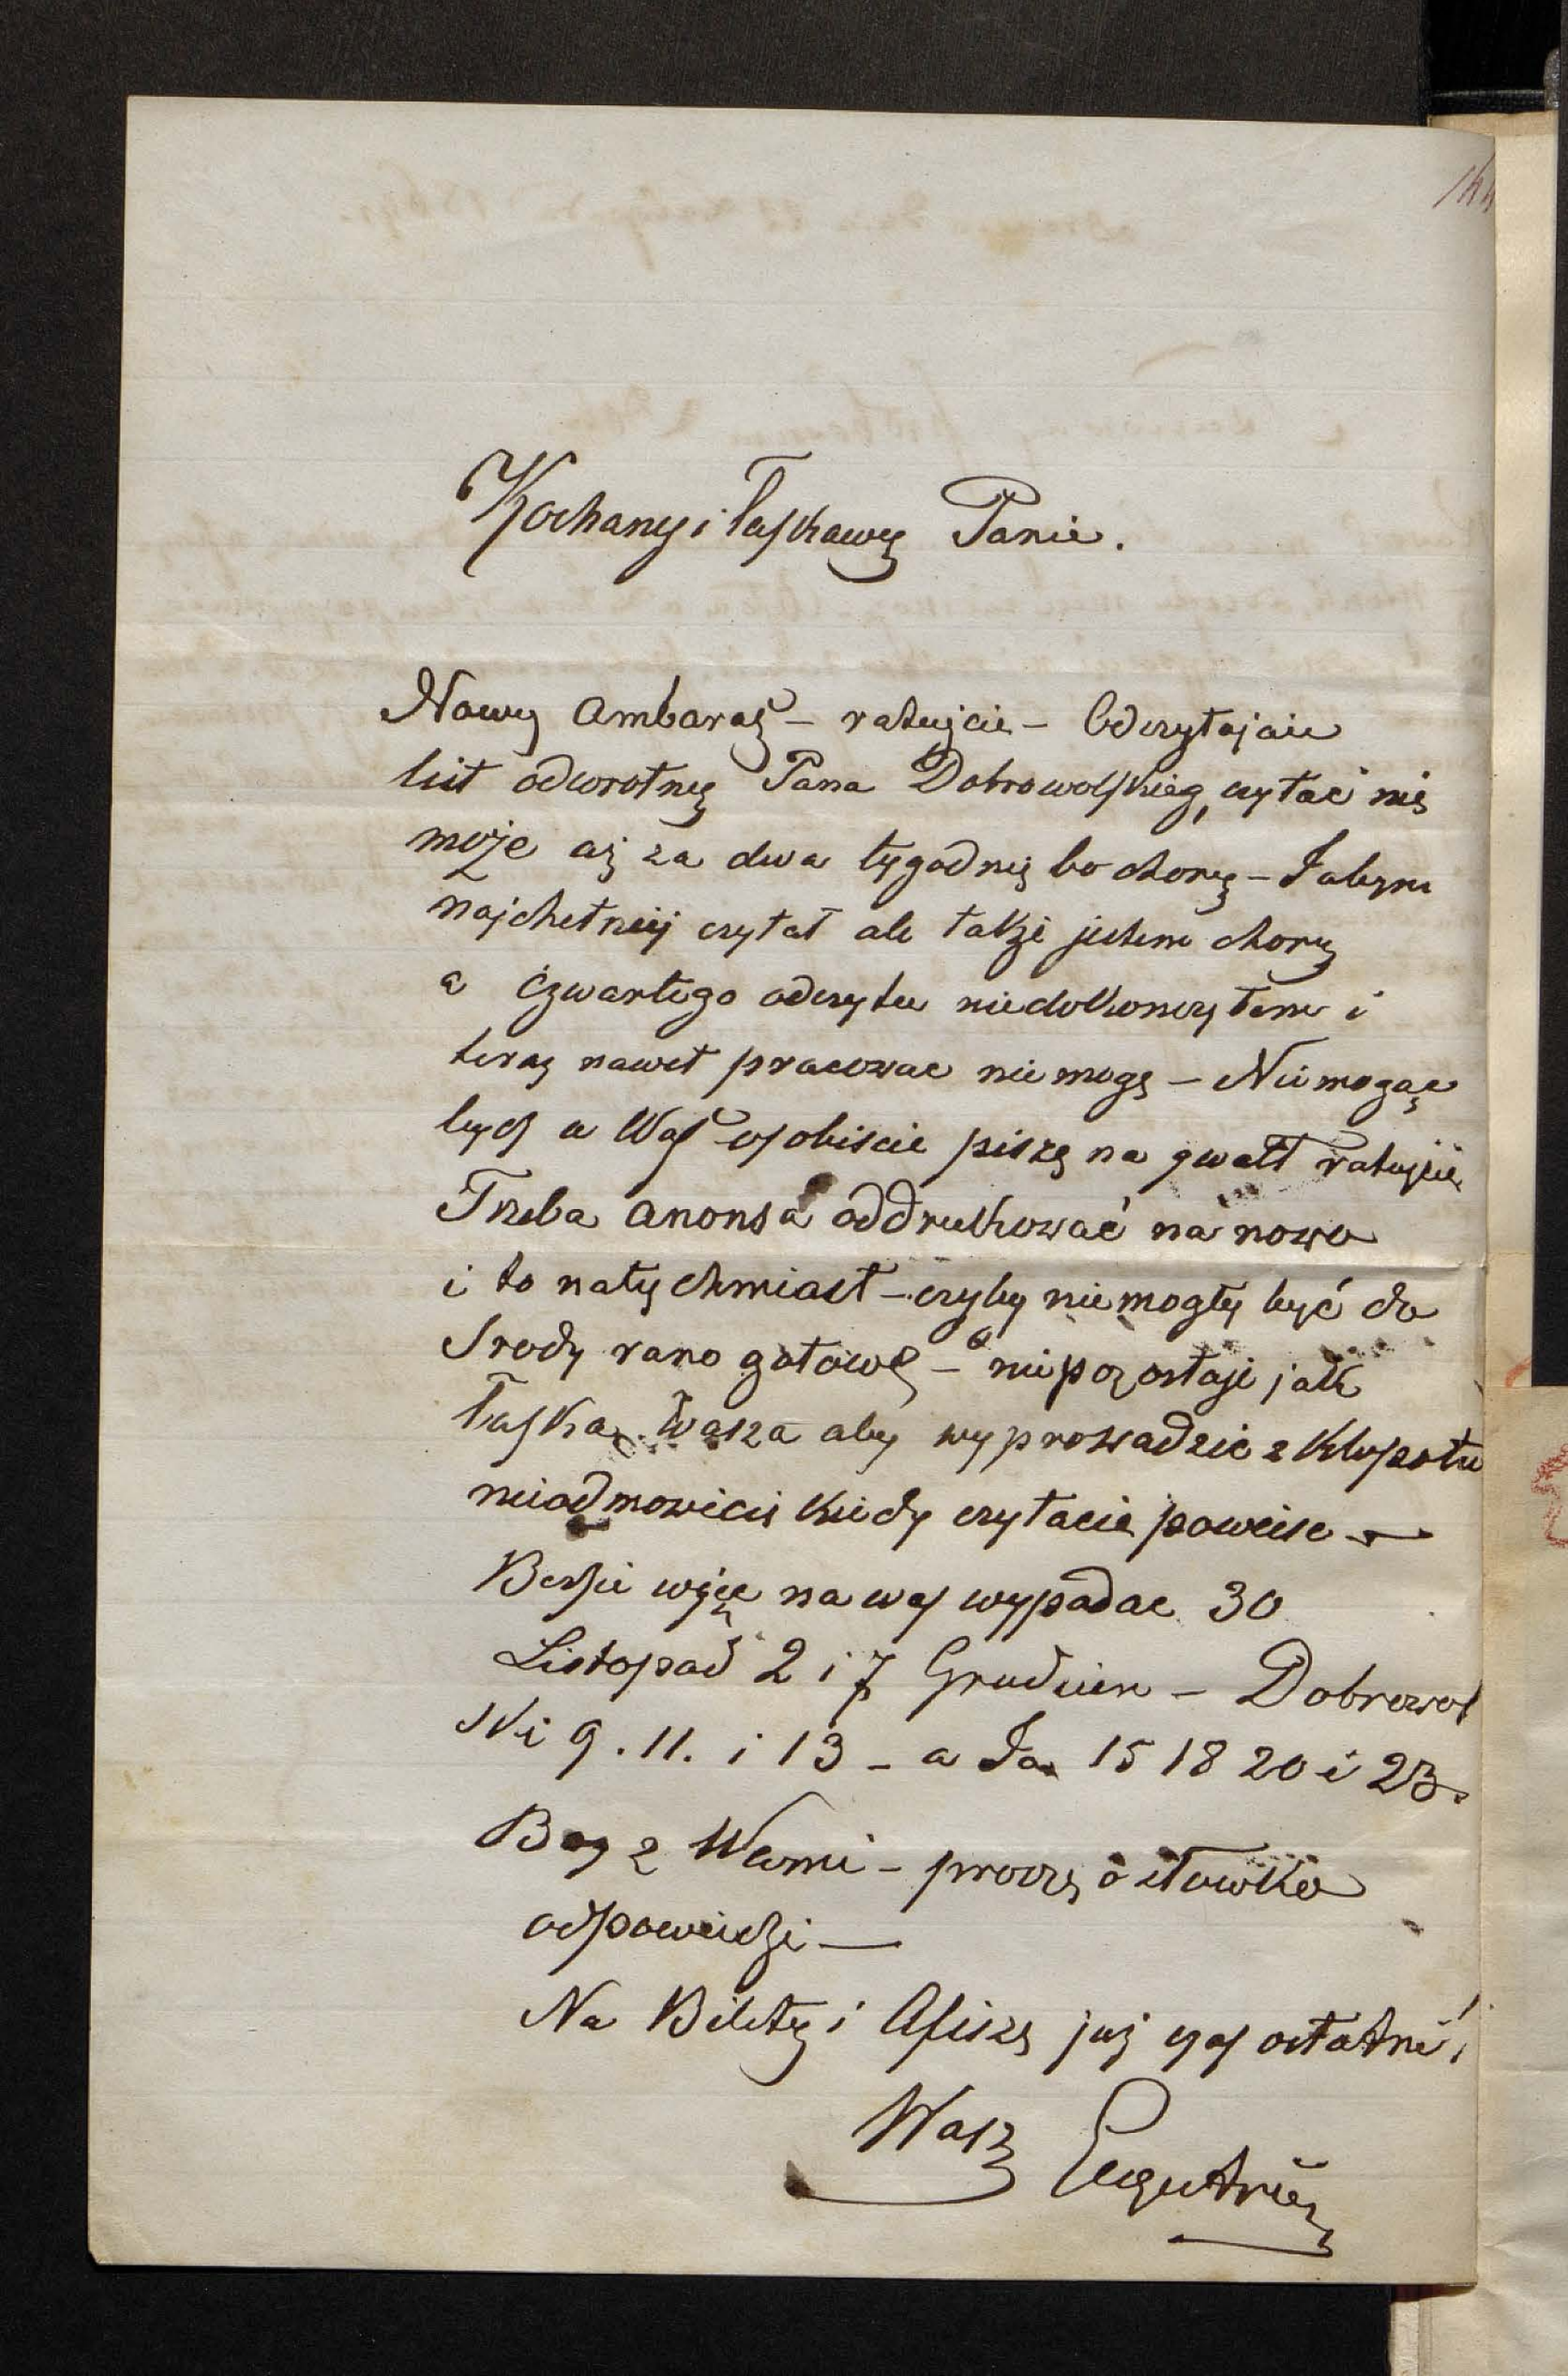 144
Kochany i łaskawy Panie.
Nowy ambaras – ratujcie – Odczytajcie
list odwrotny Pana Dobrowolskieg, czytać nie
może aż za dwa tygodnie bo chory – Jabym
najchetniej czytał ale także jestem chory
a czwartego odczytu niedokonczyłem i
teraz nawet pracowac nie mogę – Niemogąc
byc u Was osobiscie piszę na gwałt ratujcie
Trzeba anonsa oddrukować na nowo
i to natychmiast – czyby niemogły być do
Srody rano gotowe – niepozostaje jak
łaska Wasza aby wyprowadzic z kłopotu
nieodmowicie kiedy czytacie powiesc –
Bedzie więc na was wypadac 30
Listopad 2 i 7 Grudzien – Dobrowol
ski 9. 11. i 13 – a Ja 15 18 20 i 23.
Bog z Wami – proszę o słowko
odpowiedzi —
Na Bilety i Afisze już czas ostatni,
Wasz